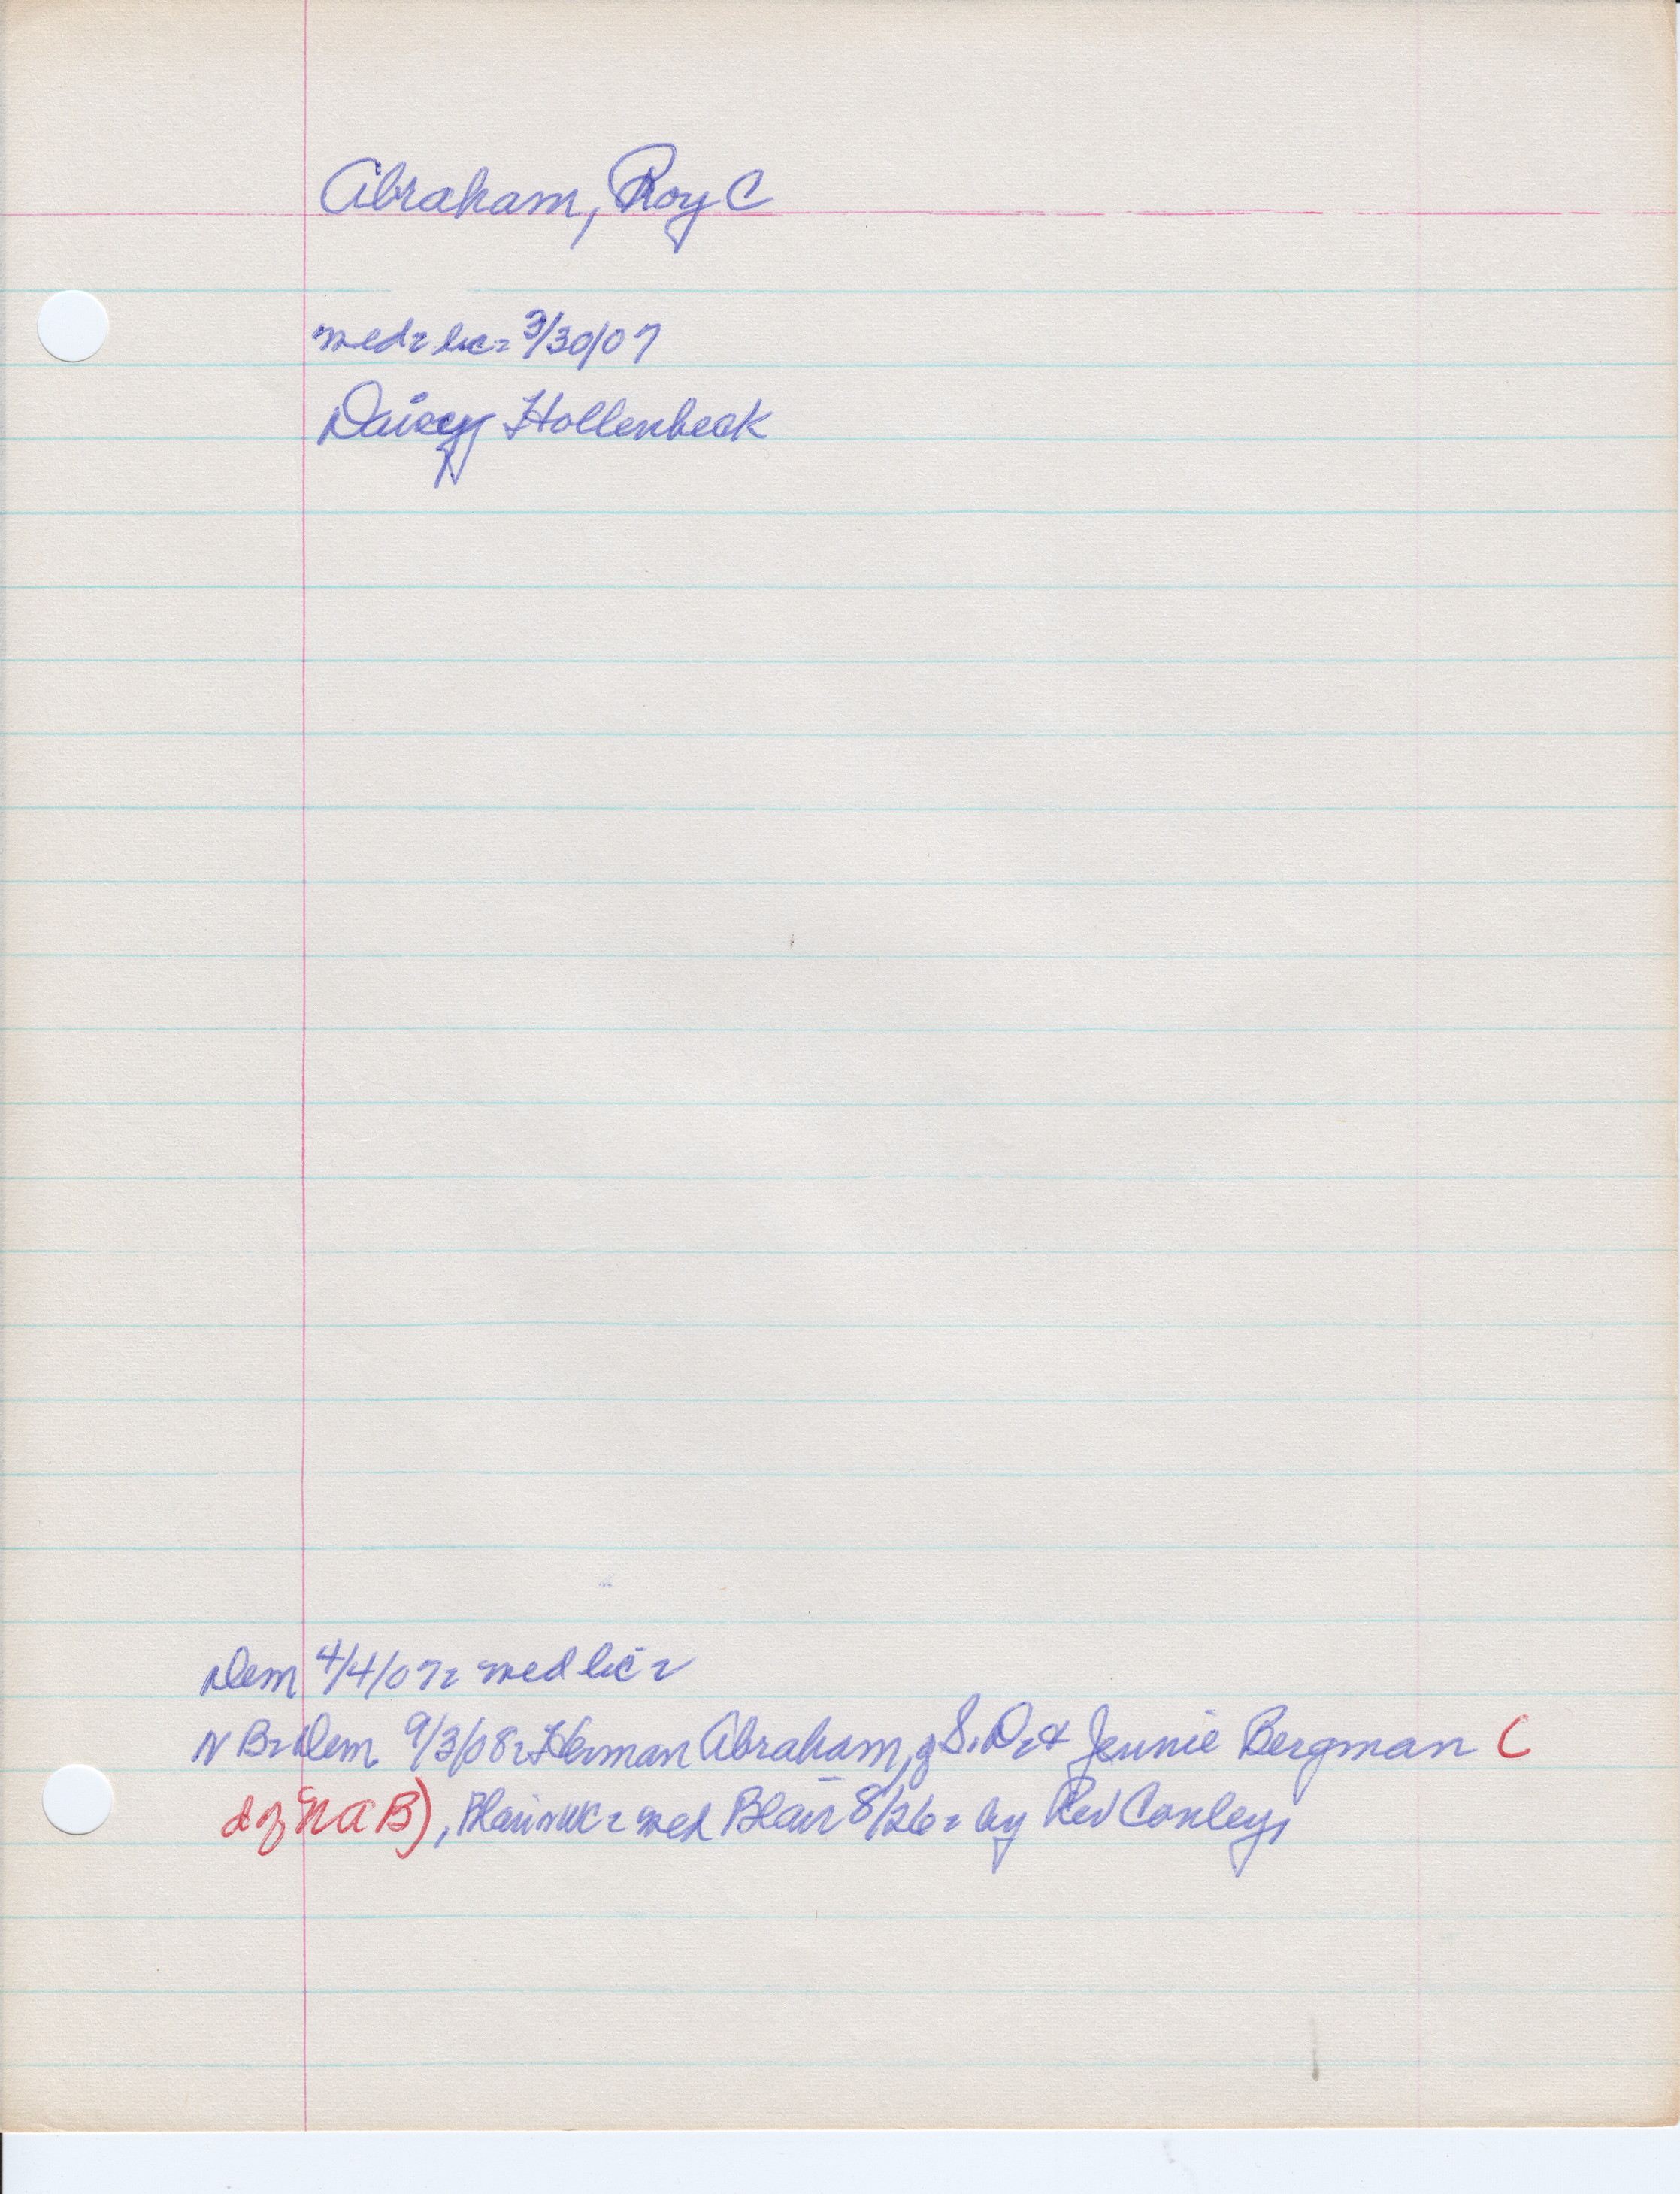 Abraham, Roy C
med= lic= 3/30/07
Daisey Hollenbeck
Dem 4/4/07= med lic=
N B= Dem 9/3/08= Herman Abraham, of S.D. & Jennie Bergman (
d of N A B), Blair = med Blair 8/26= by Rev Conley,